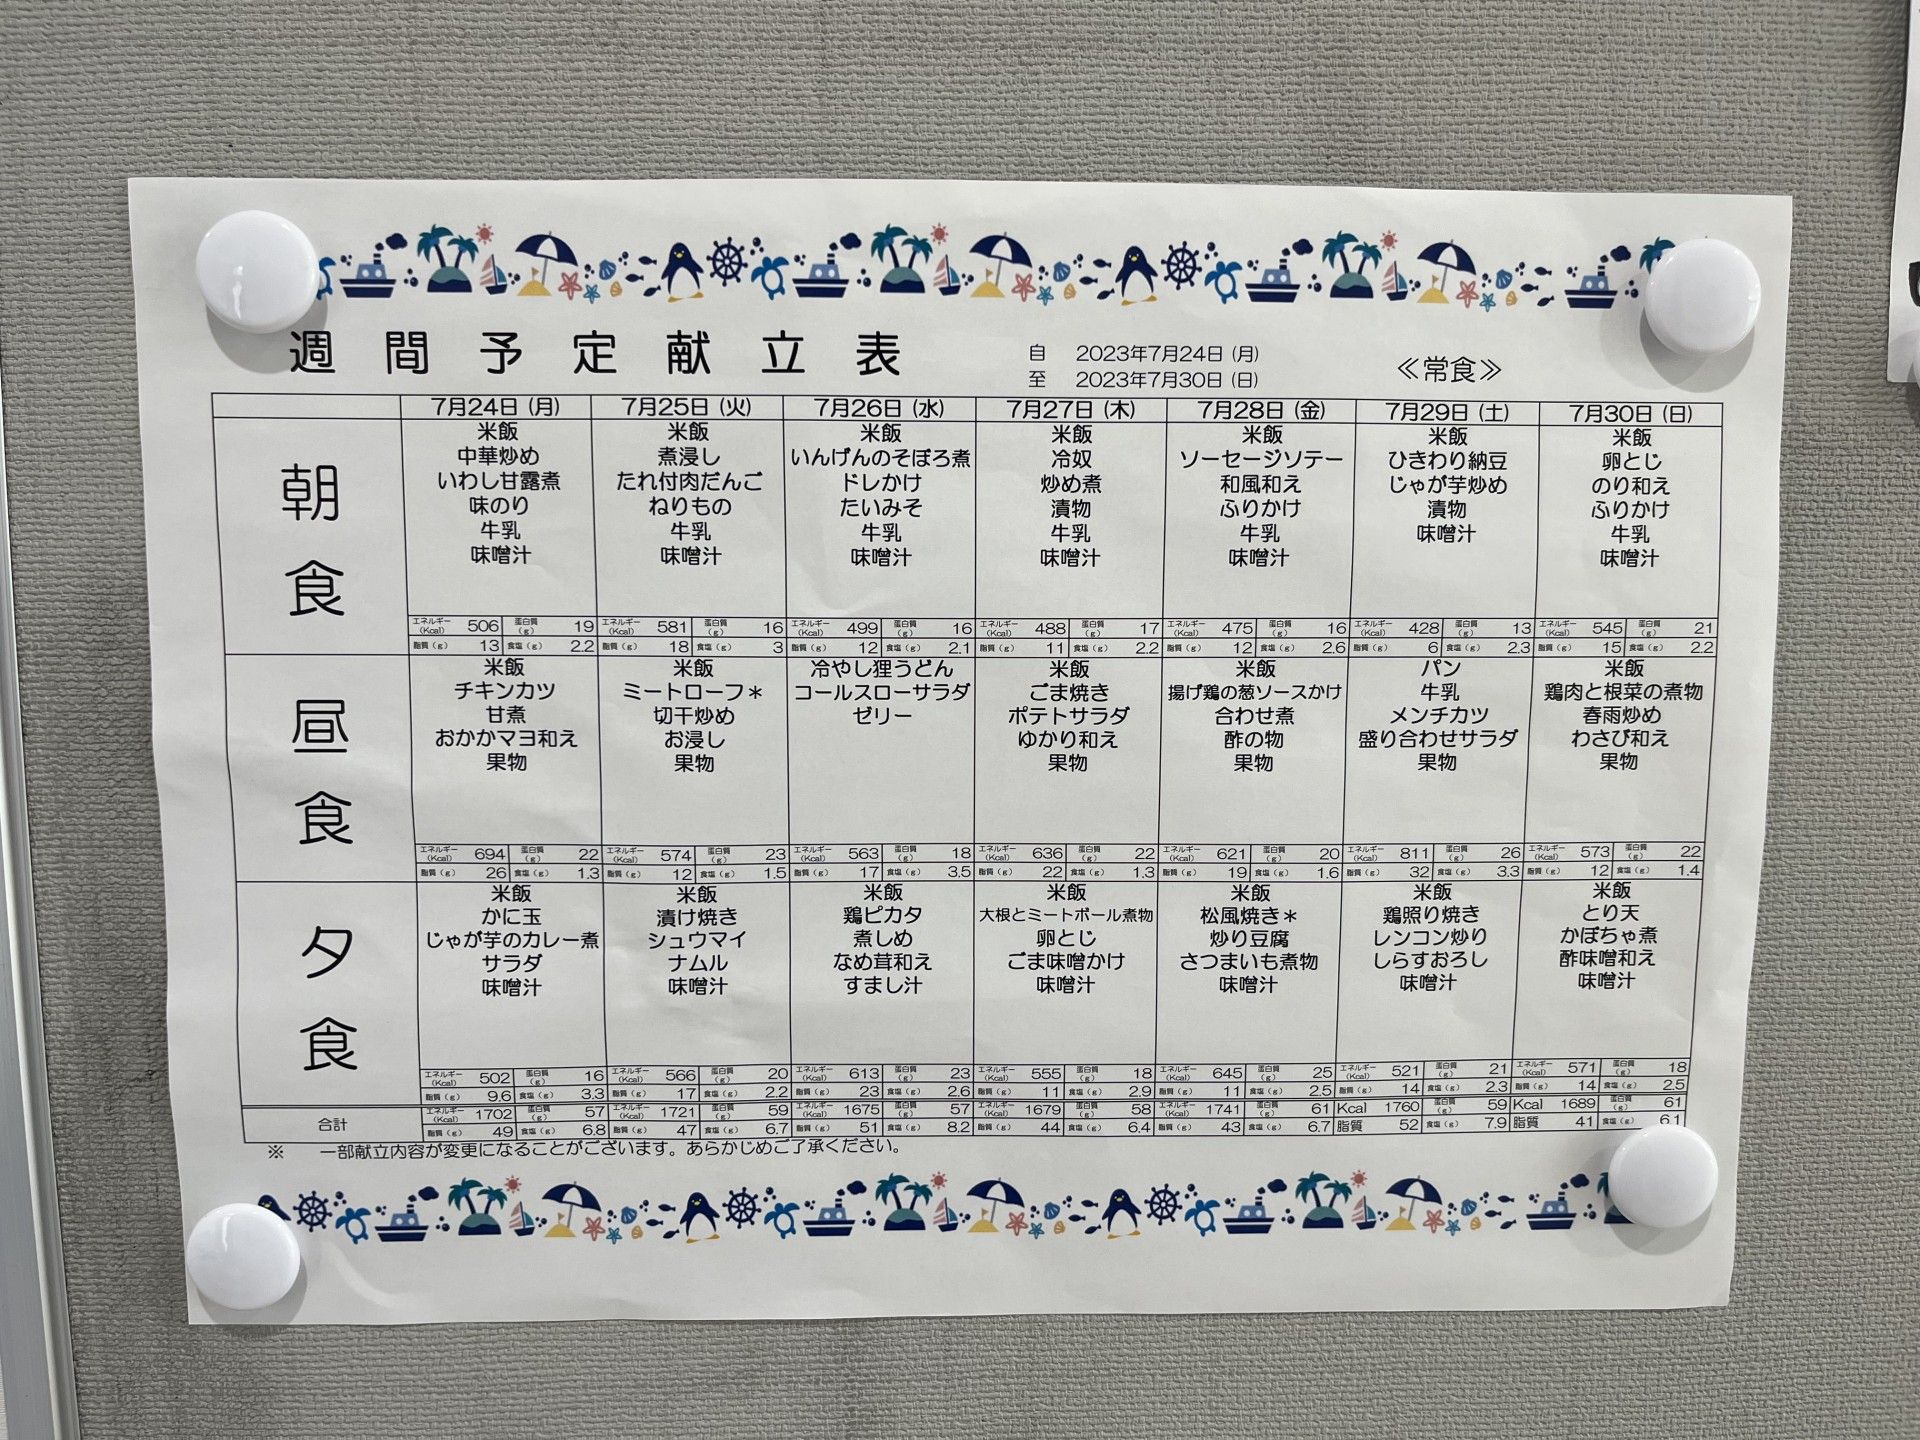 週間予定献立表
自 2023年7月24日 (月)
至 2023年7月30日 (日)
≪常食≫
7月24日 (月) 7月25日 (火) 7月26日 (水) 7月27日 (木) 7月28日 (金) 7月29日 (土) 7月30日 (日)
朝食
米飯 米飯 米飯 米飯 米飯 米飯 米飯
中華炒め 煮浸し いんげんのそぼろ煮 冷奴 ソーセージソテー ひきわり納豆 卵とじ
いわし甘露煮 たれ付肉だんご ドレかけ 炒め煮 和風和え じゃが芋炒め のり和え
味のり ねりもの たいみそ 漬物 ふりかけ 漬物 ふりかけ
牛乳 牛乳 牛乳 牛乳 牛乳 味噌汁 牛乳
味噌汁 味噌汁 味噌汁 味噌汁 味噌汁 味噌汁
エネルギー(Kcal) 506 蛋白質(g) 19 エネルギー(Kcal) 581 蛋白質(g) 16 エネルギー(Kcal) 499 蛋白質(g) 16 エネルギー(Kcal) 488 蛋白質(g) 17 エネルギー(Kcal) 475 蛋白質(g) 16 エネルギー(Kcal) 428 蛋白質(g) 13 エネルギー(Kcal) 545 蛋白質(g) 21
脂質(g) 13 食塩(g) 2.2 脂質(g) 18 食塩(g) 3 脂質(g) 12 食塩(g) 2.1 脂質(g) 11 食塩(g) 2.2 脂質(g) 12 食塩(g) 2.6 脂質(g) 6 食塩(g) 2.3 脂質(g) 15 食塩(g) 2.2
昼食
米飯 米飯 冷やし狸うどん 米飯 米飯 パン 米飯
チキンカツ ミートローフ＊ コールスローサラダ ごま焼き 揚げ鶏の葱ソースかけ 牛乳 鶏肉と根菜の煮物
甘煮 切干炒め ゼリー ポテトサラダ 合わせ煮 メンチカツ 春雨炒め
おかかマヨ和え お浸し ゆかり和え 酢の物 盛り合わせサラダ わさび和え
果物 果物 果物 果物 果物 果物
エネルギー(Kcal) 694 蛋白質(g) 22 エネルギー(Kcal) 574 蛋白質(g) 23 エネルギー(Kcal) 563 蛋白質(g) 18 エネルギー(Kcal) 636 蛋白質(g) 22 エネルギー(Kcal) 621 蛋白質(g) 20 エネルギー(Kcal) 811 蛋白質(g) 26 エネルギー(Kcal) 573 蛋白質(g) 22
脂質(g) 26 食塩(g) 1.3 脂質(g) 12 食塩(g) 1.5 脂質(g) 17 食塩(g) 3.5 脂質(g) 22 食塩(g) 1.3 脂質(g) 19 食塩(g) 1.6 脂質(g) 32 食塩(g) 3.3 脂質(g) 12 食塩(g) 1.4
夕食
米飯 米飯 米飯 米飯 米飯 米飯 米飯
かに玉 漬け焼き 鶏ピカタ 大根とミートボール煮物 松風焼き＊ 鶏照り焼き とり天
じゃが芋のカレー煮 シュウマイ 煮しめ 卵とじ 炒り豆腐 レンコン炒り かぼちゃ煮
サラダ ナムル なめ茸和え ごま味噌かけ さつまいも煮物 しらすおろし 酢味噌和え
味噌汁 味噌汁 すまし汁 味噌汁 味噌汁 味噌汁 味噌汁
エネルギー(Kcal) 502 蛋白質(g) 16 エネルギー(Kcal) 566 蛋白質(g) 20 エネルギー(Kcal) 613 蛋白質(g) 23 エネルギー(Kcal) 555 蛋白質(g) 18 エネルギー(Kcal) 645 蛋白質(g) 25 エネルギー(Kcal) 521 蛋白質(g) 21 エネルギー(Kcal) 571 蛋白質(g) 18
脂質(g) 9.6 食塩(g) 3.3 脂質(g) 17 食塩(g) 2.2 脂質(g) 23 食塩(g) 2.6 脂質(g) 11 食塩(g) 2.9 脂質(g) 11 食塩(g) 2.5 脂質(g) 14 食塩(g) 2.3 脂質(g) 14 食塩(g) 2.5
合計
エネルギー(Kcal) 1702 蛋白質(g) 57 エネルギー(Kcal) 1721 蛋白質(g) 59 エネルギー(Kcal) 1675 蛋白質(g) 57 エネルギー(Kcal) 1679 蛋白質(g) 58 エネルギー(Kcal) 1741 蛋白質(g) 61 Kcal 1760 蛋白質(g) 59 Kcal 1689 蛋白質(g) 61
脂質(g) 49 食塩(g) 6.8 脂質(g) 47 食塩(g) 6.7 脂質(g) 51 食塩(g) 8.2 脂質(g) 44 食塩(g) 6.4 脂質(g) 43 食塩(g) 6.7 脂質 52 食塩(g) 7.9 脂質 41 食塩(g) 6.1
※ 一部献立内容が変更になることがございます。あらかじめご了承ください。